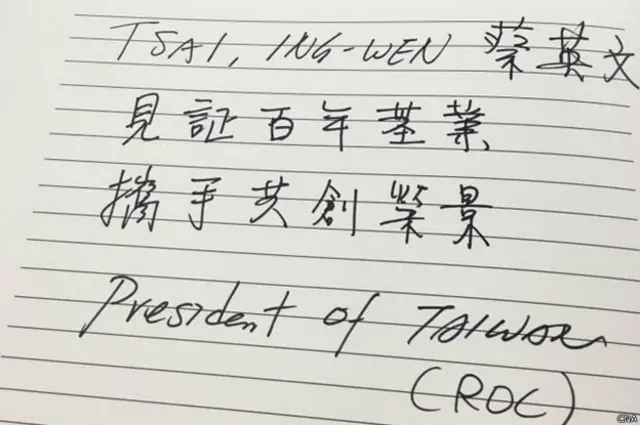 TSAI, ING-WEN 蔡英文
見証百年基業
攜手共創榮景
President of TAIWAN
(ROC)
CNA